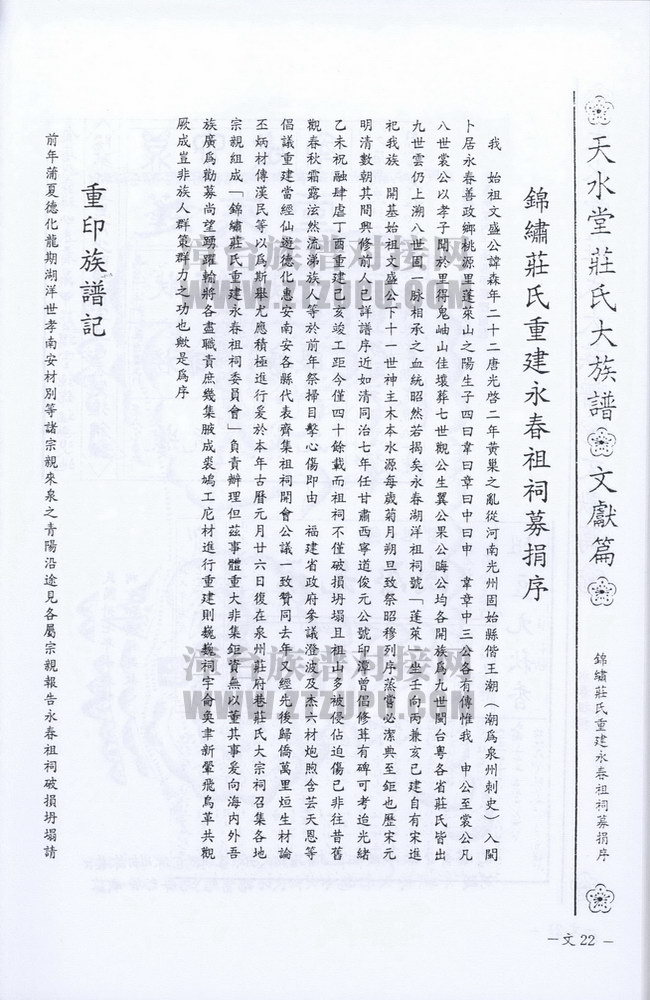 天水堂莊氏大族譜 文獻篇
錦繡莊氏重建永春祖祠募捐序
錦繡莊氏重建永春祖祠募捐序
我 始祖文盛公諱森年二十二唐光啓二年黃巢之亂從河南光州固始縣偕王潮(潮爲泉州刺史)入閩
卜居永春善政鄉桃源里蓬萊山之陽生子四曰韋曰章曰中曰申 韋章中三公各有傳惟我 申公至裳公凡
八世裳公以孝子聞於里得鬼岫山佳壤葬七世觀公生翼公果公晦公均各開族爲九世閩台粵各省莊氏皆出
九世雲仍上溯八世固一脉相承之血統昭然若揭矣永春湖洋祖祠號「蓬萊」坐壬向丙兼亥巳建自有宋進
祀我族 開基始祖文盛公下十一世神主木本水源每歲菊月朔旦致祭昭穆列序蒸嘗必潔典至鉅也歷宋元
明清數朝其間興修前人已詳譜序近如清同治七年任甘肅西寧道俊元公號印潭曾倡修葺有碑可考迨光緒
乙未祝融肆虐丁酉重建己亥竣工距今僅四十餘載而祖祠不僅破損坍塌且祖山多被侵佔迫傷已非往昔舊
觀春秋霜露泫然流涕族人等於前年祭掃目擊心傷即由 福建省政府參議澄波及杰六材炮煦含芸天恩等
倡議重建當經仙遊德化惠安南安各縣代表齊集祖祠開會公議一致贊同去年又經先後歸僑萬里烜生材論
丕炳材傳漢民等以爲斯舉尤應積極進行爰於本年古曆元月廿六日復在泉州莊府巷莊氏大宗祠召集各地
宗親組成「錦繡莊氏重建永春祖祠委員會」負責辦理但茲事體重大非集鉅資無以董其事爰向海內外吾
族廣爲勸募尚望踴躍輸將各盡職責庶幾集腋成裘鳩工庀材進行重建則巍巍祠宇侖奐聿新翬飛鳥革共觀
厥成豈非族人群策群力之功也歟是爲序
重印族譜記
前年蒲夏德化龍期湖洋世孝南安材別等諸宗親來泉之青陽沿途見各屬宗親報告永春祖祠破損坍塌請
—文22—
漳台族谱对接网
WWW.ZTZUPU.COM
漳台族谱对接网
WWW.ZTZUPU.COM